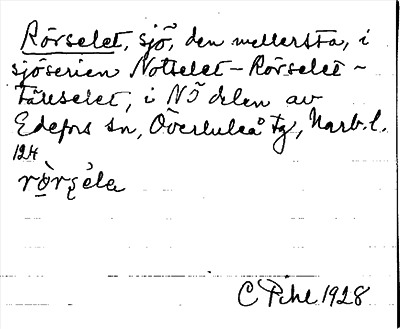 Rörselet, sjö, den mellersta, i
sjöserien Notselet - Rörselet -
Täreselet, i NÖ delen av
Edefors sn, Överluleå tg, Narb. l.
124
C Pihl 1928